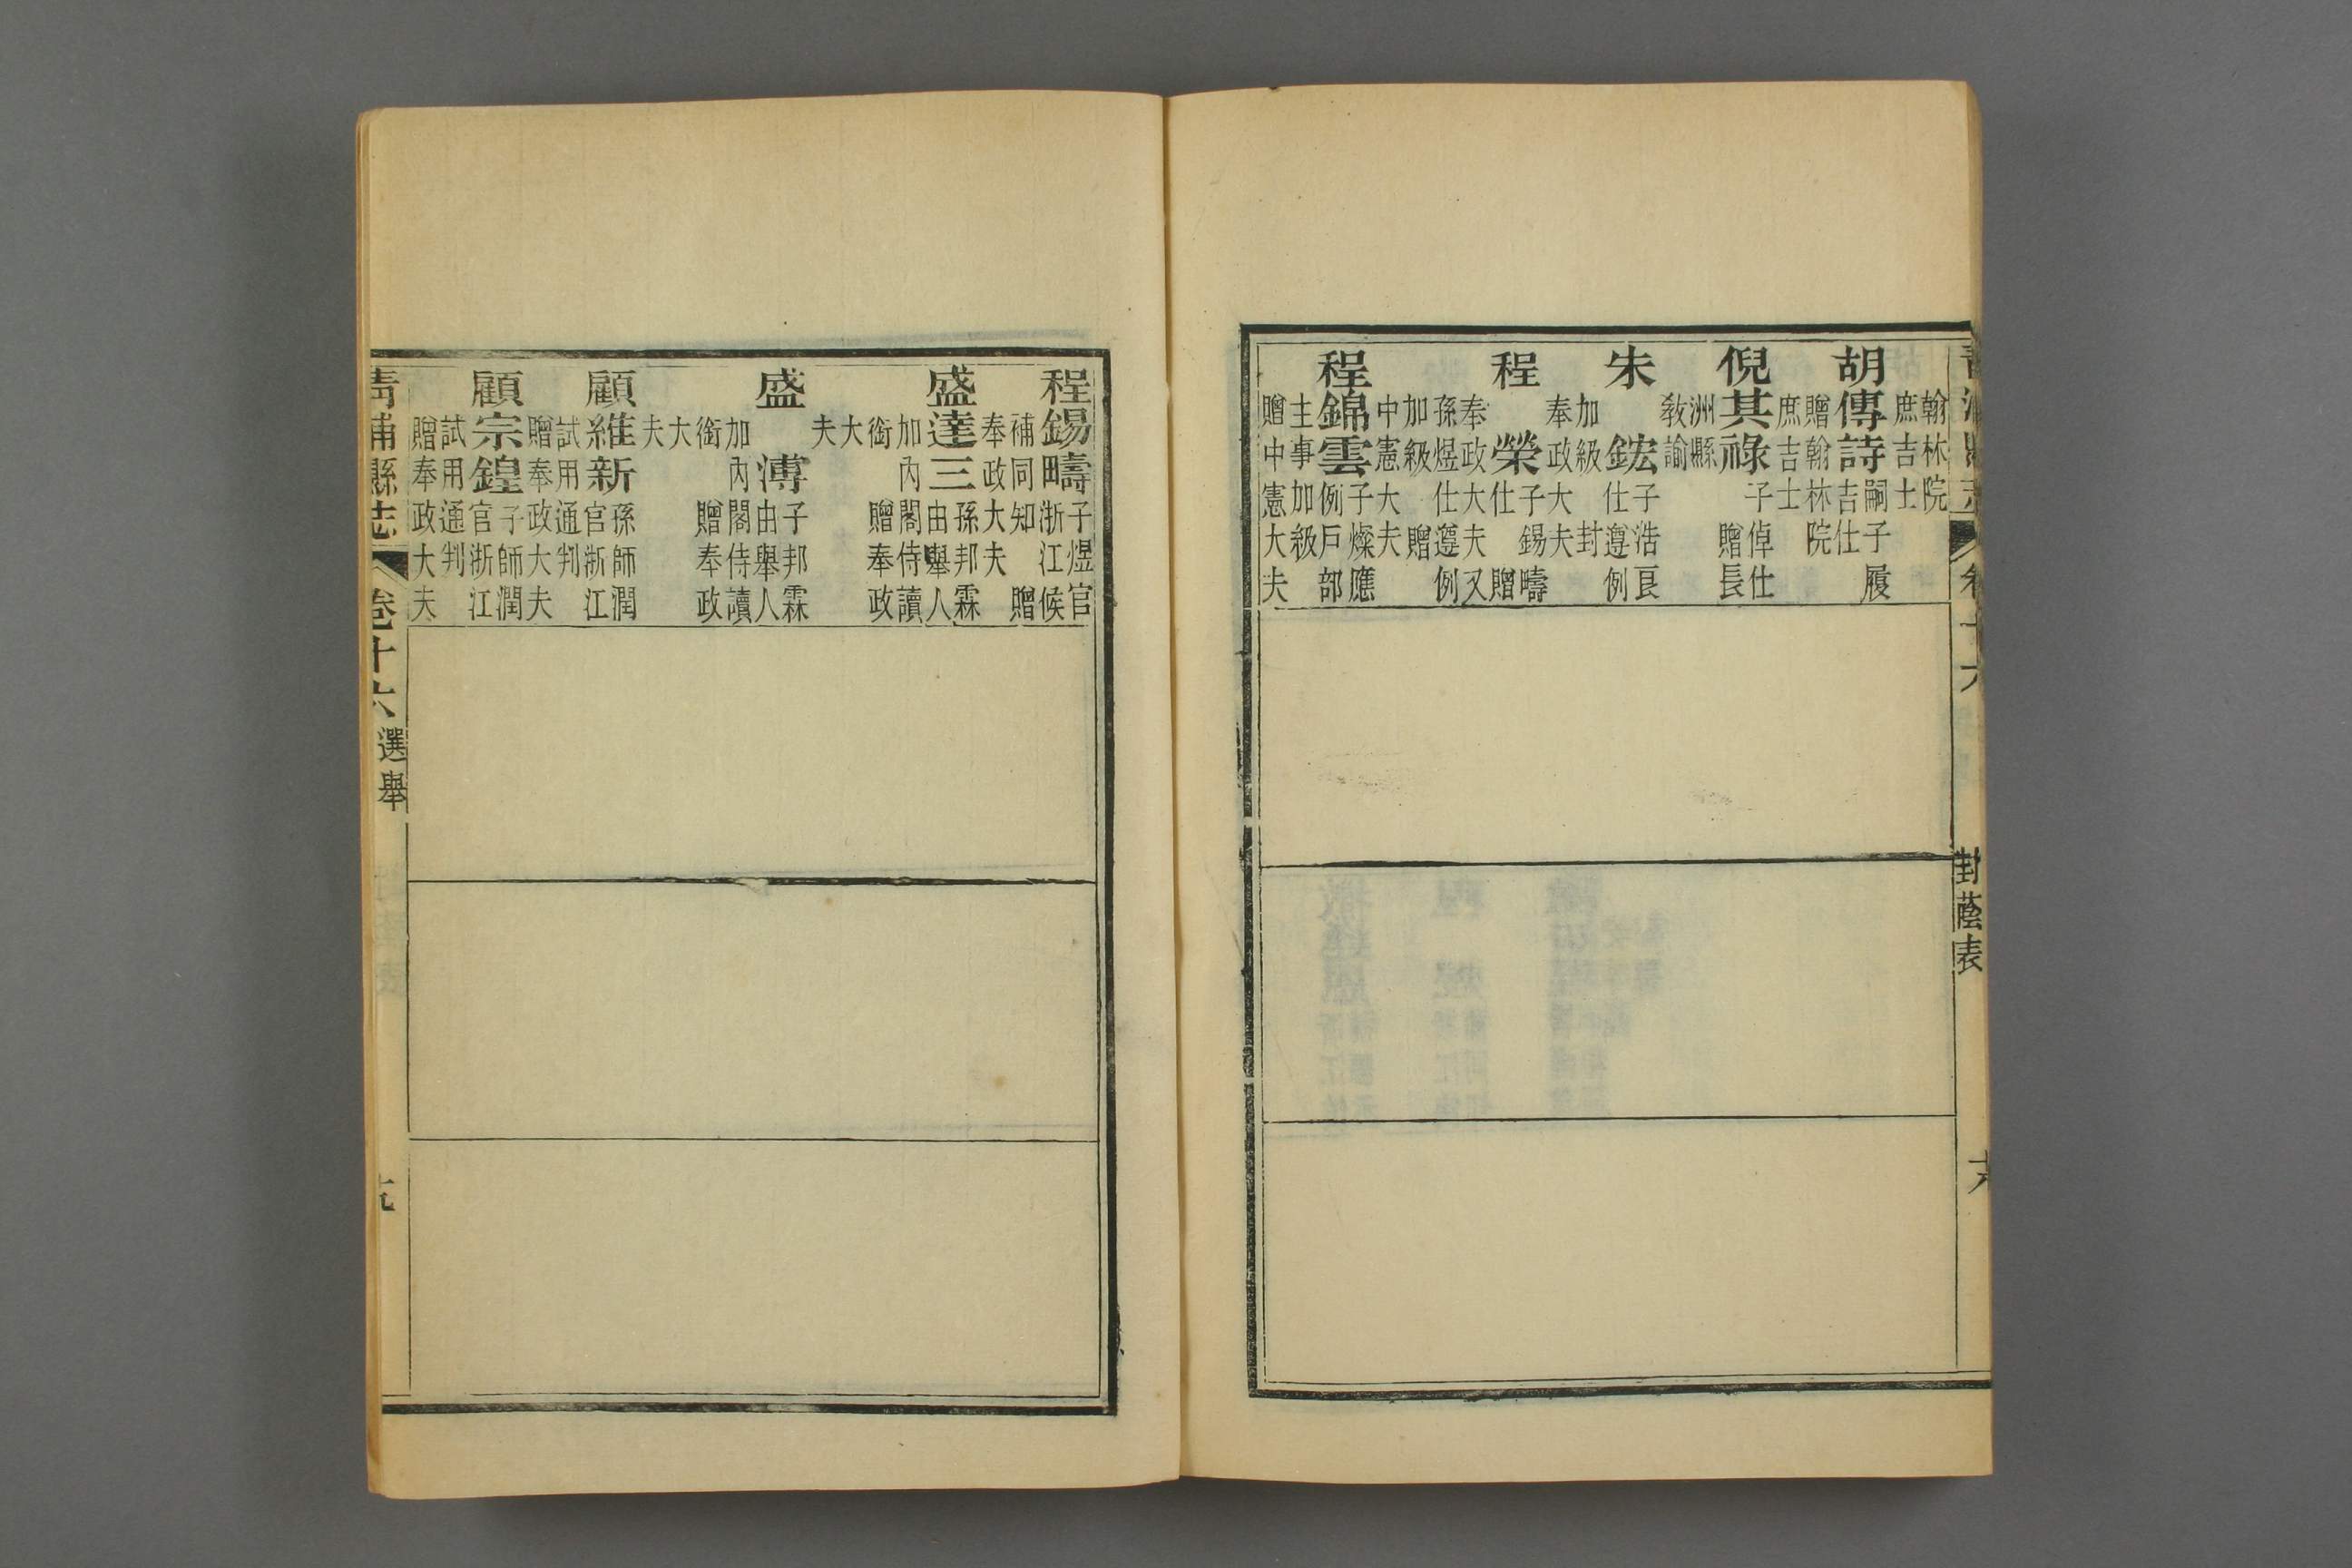 青浦縣志 卷十六 封蔭表
翰林院
庶吉士
胡傳詩
嗣子履
吉仕
贈翰林院
庶吉士
倪其祿
子倬仕
贈長
洲縣
教諭
朱鋐
子浩良
仕遵例
加級封
奉政大夫
程榮
子錫疇
仕贈
奉政大夫又
孫煜仕遵例
加級贈
中憲大夫
程錦雲
子燦應
例戶部
主事加級
贈中憲大夫
程錫疇
子煜官
浙江候
補同知贈
奉政大夫
盛達三
孫邦霖
由舉人
加內閣侍讀
銜贈奉政
大
夫
盛溥
子邦霖
由舉人
加內閣侍讀
銜贈奉政
大
夫
顧維新
孫師潤
官浙江
試用通判
贈奉政大夫
顧宗鍠
子師潤
官浙江
試用通判
贈奉政大夫
青浦縣志 卷十六 選舉